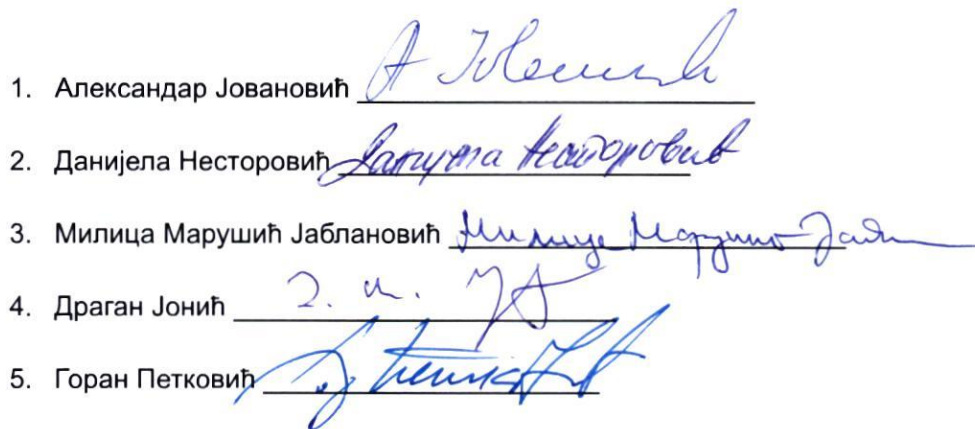 1. Александар Јовановић
2. Данијела Несторовић Данијела Несторовић
3. Милица Марушић Јаблановић Милица Марушић
4. Драган Јонић
5. Горан Петковић